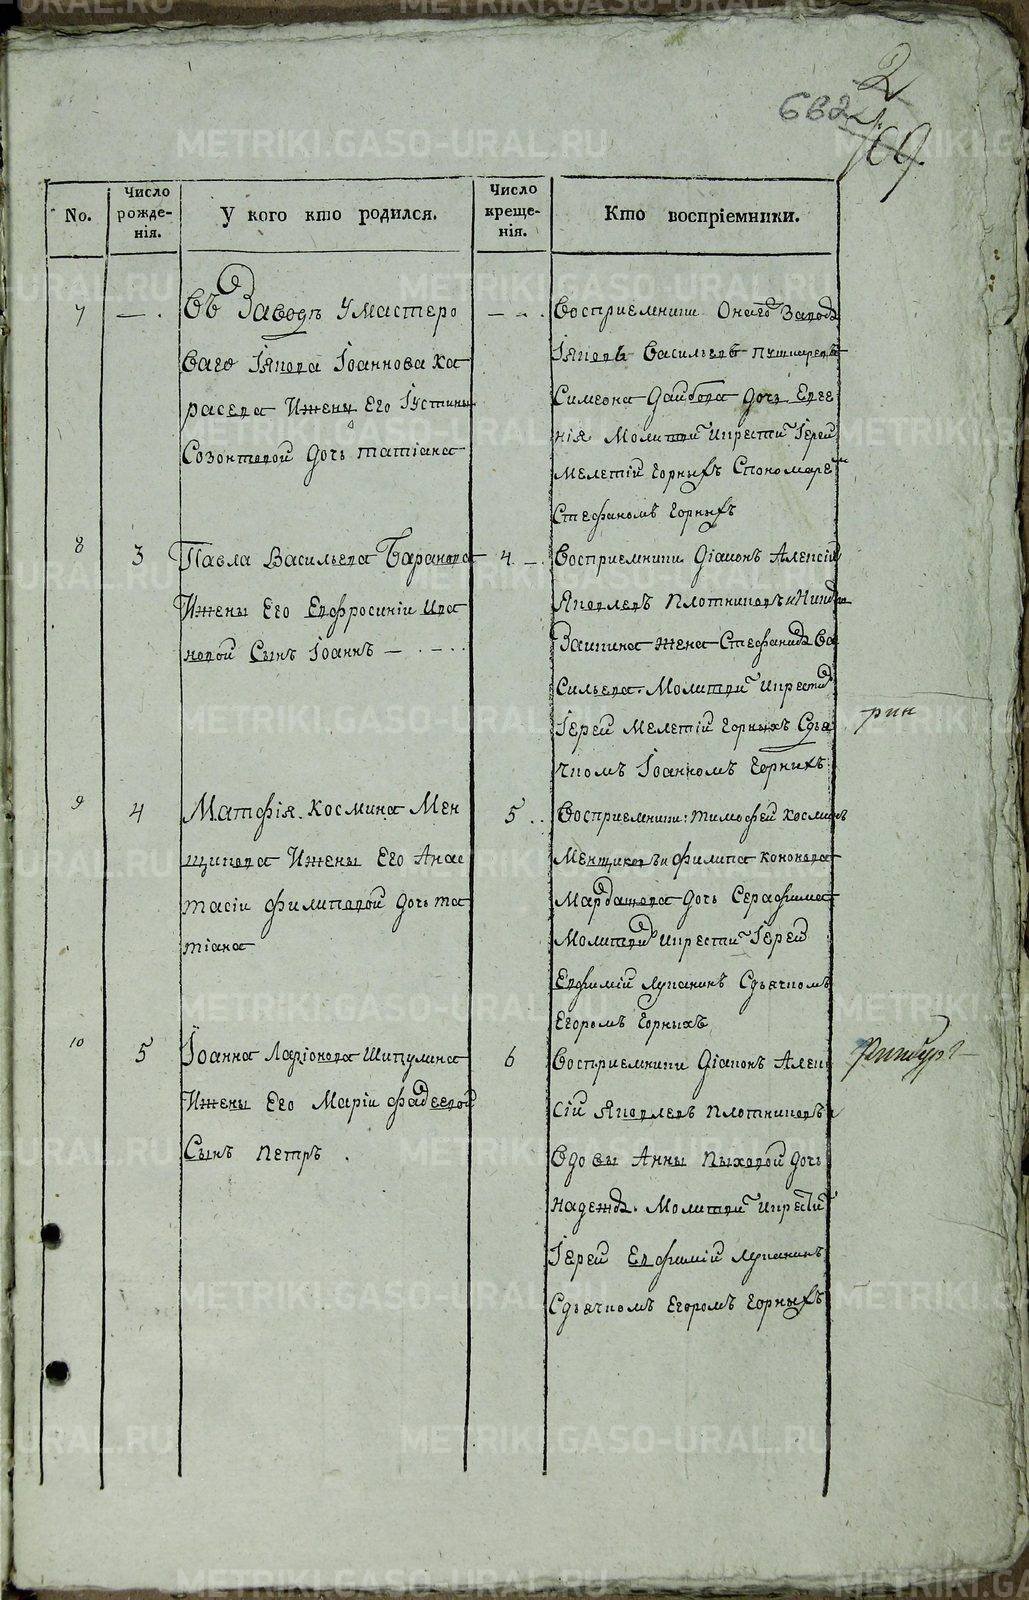 2
662
109.
No.
Число рожде-нія.
У кого кто родился.
Число креще-нія.
Кто воспріемники.
7 — .
Въ Заводѣ Умастеро
ваго Іякова Іоаннова Ка
расева Ижены Его Іустины
Созонтовой дочь татіана
— - .
Восприемники Онаго Завода
Іяковъ Васильевъ Пушкаревъ
Симеона дочь Евге
нія Молитви: Икрести: Іерей
Мелетій Горныхъ Спономаре
Стефаномъ Горныхъ
8 3
Павла Васильева Баранова
Ижены Его Ефросиніи Ива
новой Сынъ Іоаннъ — . — . .
4. —.
Восприемники Діаконъ Алексій
Яковлевъ Плотниковъ и
жена Стефанида Ва
сильева. Молитви: Икрести:
Іерей Мелетій Горныхъ Сдья
чкомъ Іоанномъ Горныхъ
9 4
Матфія Космина Мен
щикова Ижены Его Анас
тасіи Филиповой дочь та
тіана
5 . .
Восприемники: тимофей Косминъ
Менщиковъ и Филипа Кононова
Мардашова дочь Серафима
Молитви: Икрести: Іерей
Евфимій Лукинъ Сдьячкомъ
Егоромъ Горныхъ
10 5
Іоанна Ларіонова Шипулина
Ижены Его Маріи Фадеевой
Сынъ Петръ .
6
Восприемники Діаконъ Алек
сій Яковлевъ Плотниковъ и
Вдовы Анны Пыховой дочь
надежда. Молитви: Икрести:
Іерей Евфимій Лукинъ
Сдьячкомъ Егоромъ Горныхъ
METRIKI.GASO-URAL.RU